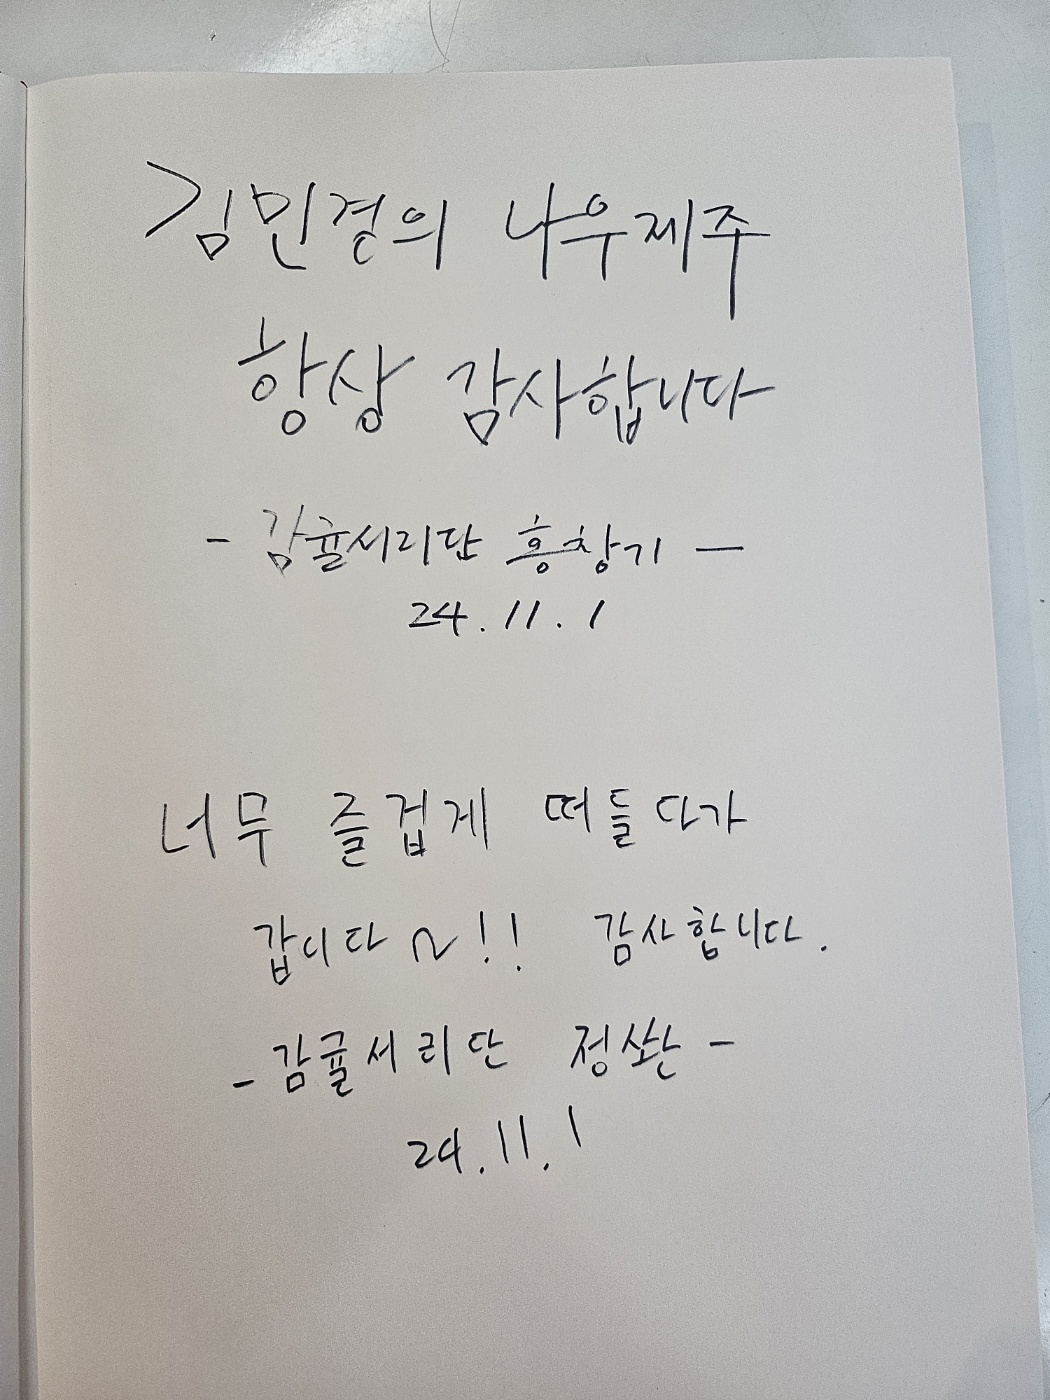 김민경의 나우제주
항상 감사합니다
- 감귤서리단 홍창기 -
24.11.1
너무 즐겁게 떠들다가
갑니다~!! 감사합니다.
- 감귤서리단 정솨 -
24.11.1